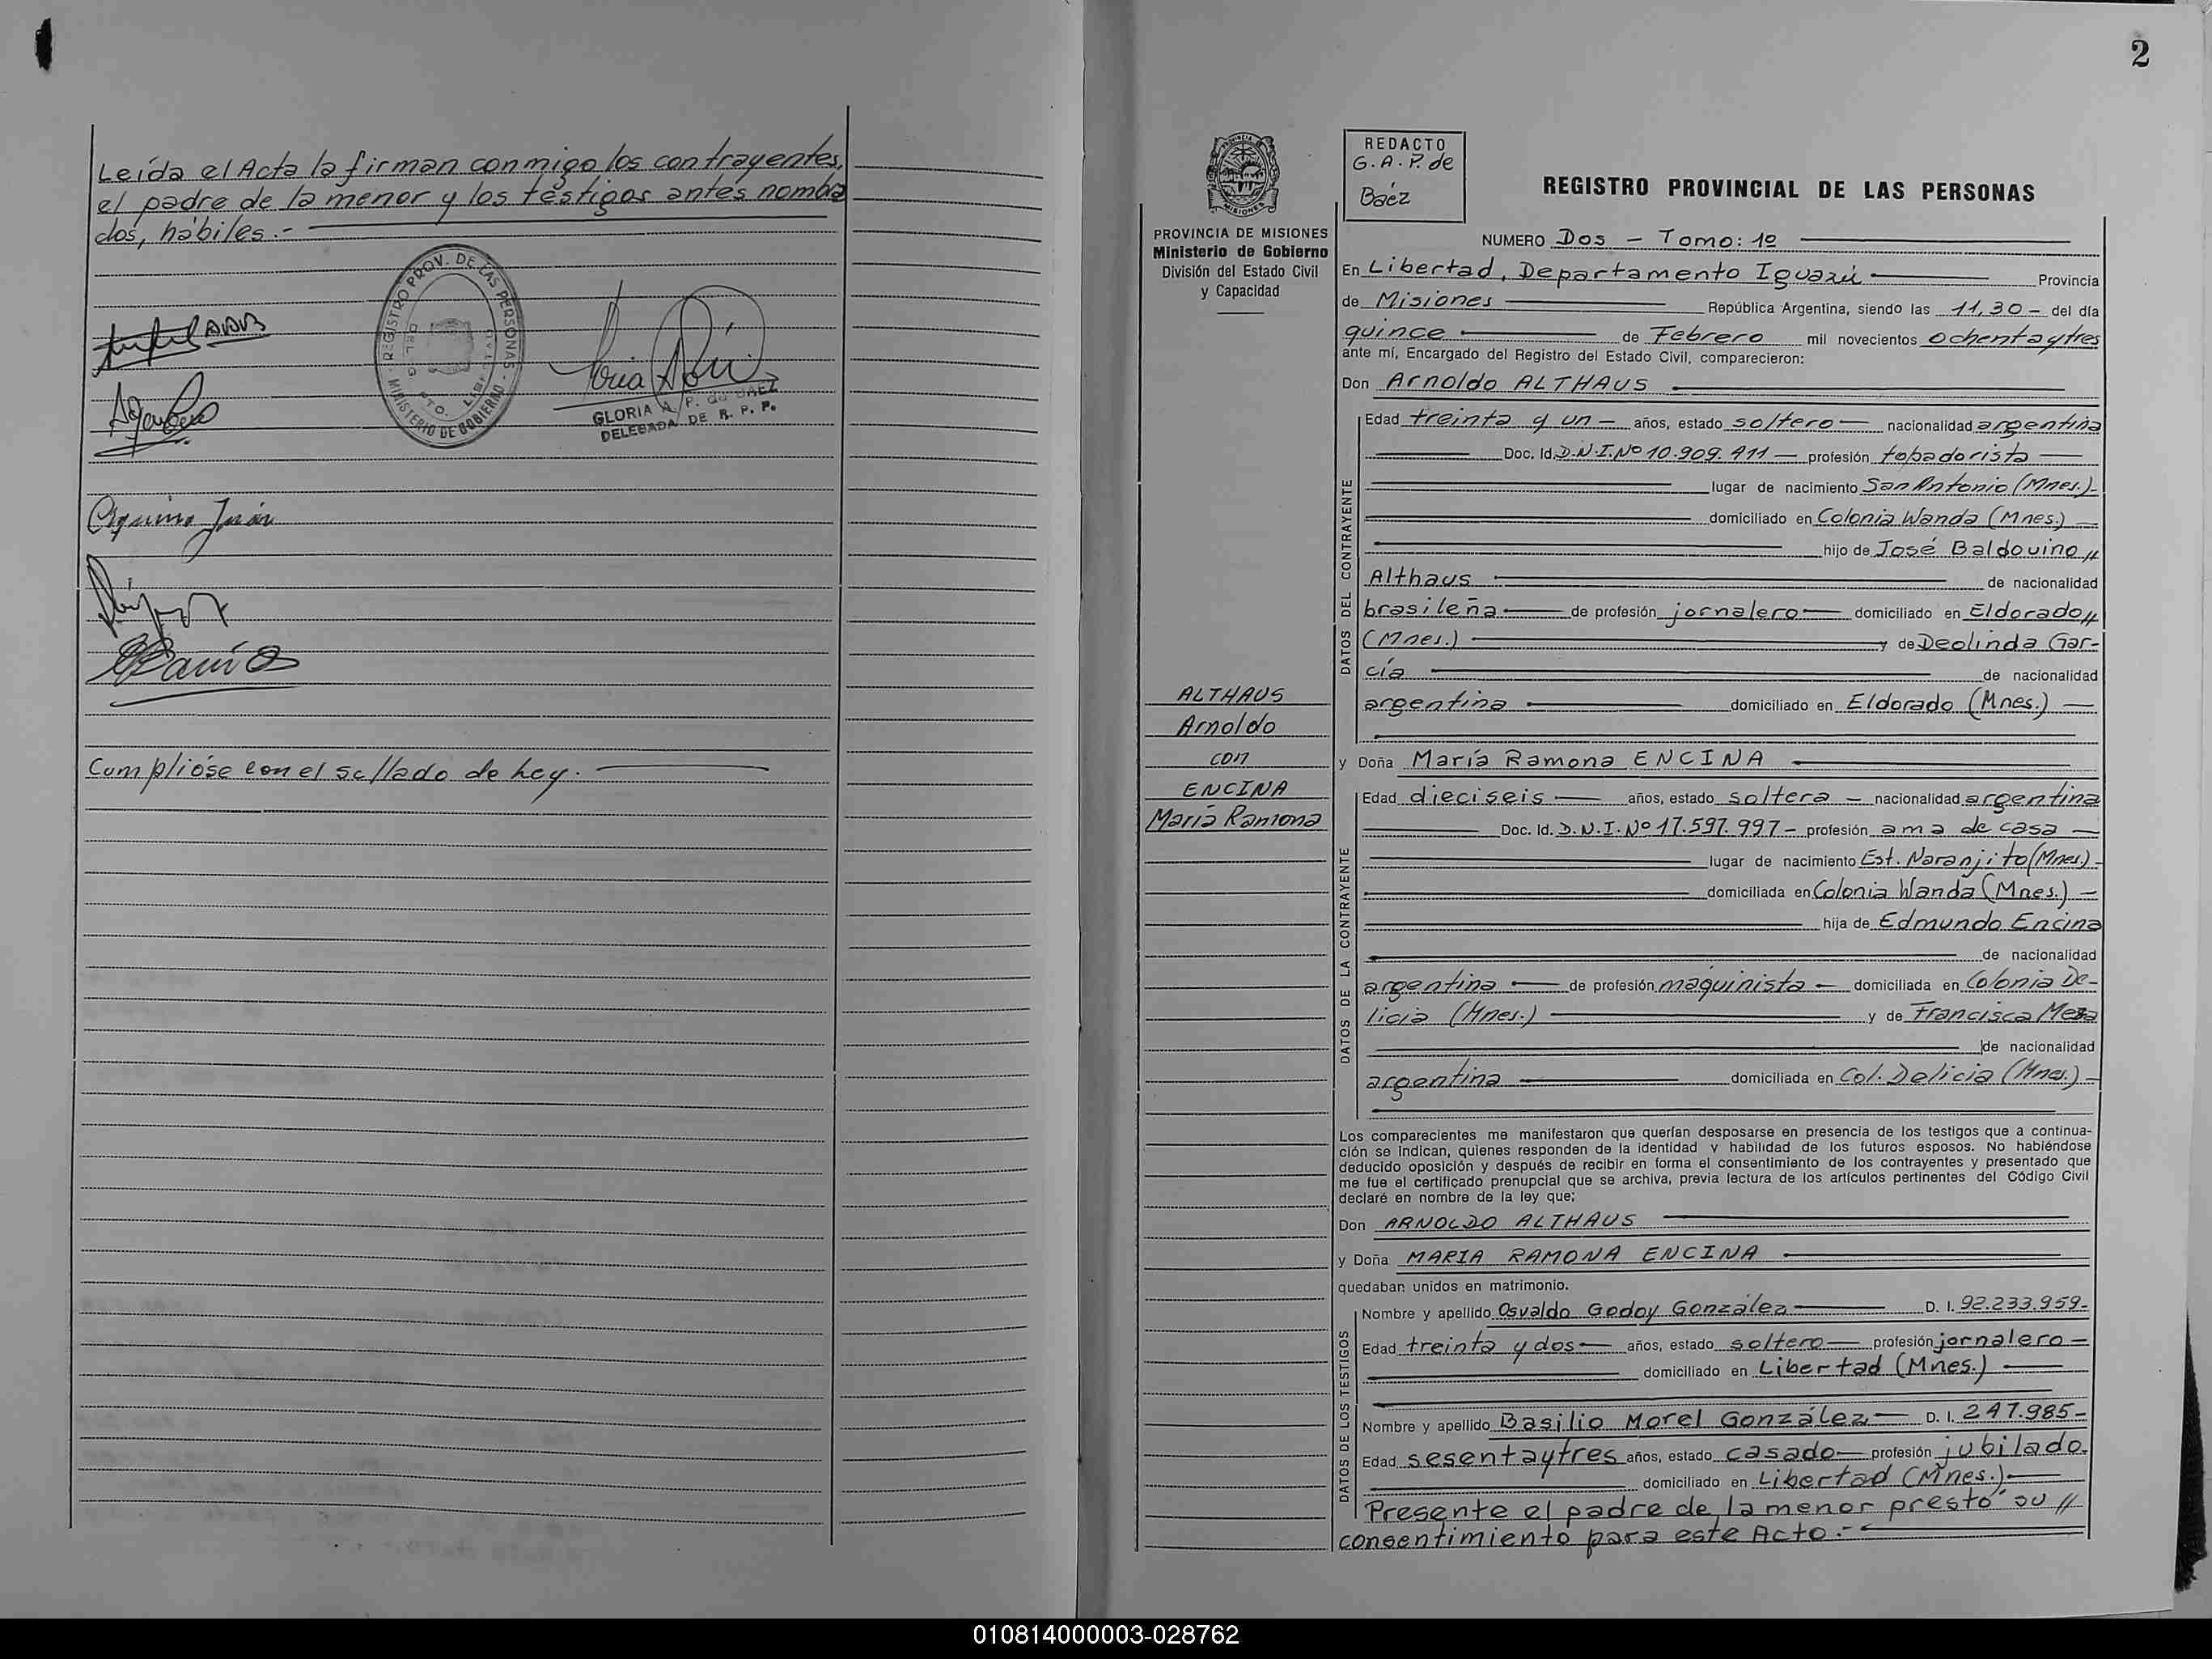 Leída el Acta la firman conmigo los contrayentes,
el padre de la menor y los testigos antes nombra
dos, hábiles.-
REGISTRO PROV. DE LAS PERSONAS
MINISTERIO DE GOBIERNO
GLORIA A. P. de BAEZ
DELEGADA DE R. P. P.
Aquino Juan
Cumplióse con el sellado de Ley.
2
PROVINCIA DE MISIONES
Ministerio de Gobierno
División del Estado Civil
y Capacidad
ALTHAUS
Arnoldo
con
ENCINA
María Ramona
REDACTO
G. A. P. de
Báez
REGISTRO PROVINCIAL DE LAS PERSONAS
NUMERO Dos - Tomo: 1º
En Libertad, Departamento Iguazú Provincia
de Misiones República Argentina, siendo las 11,30 - del día
quince de Febrero mil novecientos ochenta y tres
ante mí, Encargado del Registro del Estado Civil, comparecieron:
Don Arnoldo ALTHAUS
DATOS DEL CONTRAYENTE
Edad treinta y un - años, estado soltero - nacionalidad argentina
Doc. Id. D.N.I. Nº 10.909.411 - profesión topadorista
lugar de nacimiento San Antonio (Mnes.)-
domiciliado en Colonia Wanda (Mnes.) -
hijo de José Baldovino //
Althaus de nacionalidad
brasileña de profesión jornalero domiciliado en Eldorado //
(Mnes.) y de Deolinda Gar-
cía de nacionalidad
argentina domiciliado en Eldorado (Mnes.) -
y Doña María Ramona ENCINA
DATOS DE LA CONTRAYENTE
Edad dieciseis años, estado soltera - nacionalidad argentina
Doc. Id. D.N.I. Nº 17.597.997 - profesión ama de casa
lugar de nacimiento Est. Naranjito (Mnes.) -
domiciliada en Colonia Wanda (Mnes.) -
hija de Edmundo Encina
de nacionalidad
argentina de profesión maquinista - domiciliada en Colonia De-
licia (Mnes.) y de Francisca Meza
de nacionalidad
argentina domiciliada en Col. Delicia (Mnes.) -
Los comparecientes me manifestaron que querían desposarse en presencia de los testigos que a continua-
ción se indican, quienes responden de la identidad y habilidad de los futuros esposos. No habiéndose
deducido oposición y después de recibir en forma el consentimiento de los contrayentes y presentado que
me fue el certificado prenupcial que se archiva, previa lectura de los artículos pertinentes del Código Civil
declaré en nombre de la ley que:
Don ARNOLDO ALTHAUS
y Doña MARIA RAMONA ENCINA
quedaban unidos en matrimonio.
DATOS DE LOS TESTIGOS
Nombre y apellido Osvaldo Godoy González D. I. 92.233.959-
Edad treinta y dos años, estado soltero profesión jornalero -
domiciliado en Libertad (Mnes.)
Nombre y apellido Basilio Morel González - D. I. 247.985-
Edad sesenta y tres años, estado casado - profesión jubilado.
domiciliado en Libertad (Mnes.).
Presente el padre de la menor prestó su //
consentimiento para este Acto.-
010814000003-028762